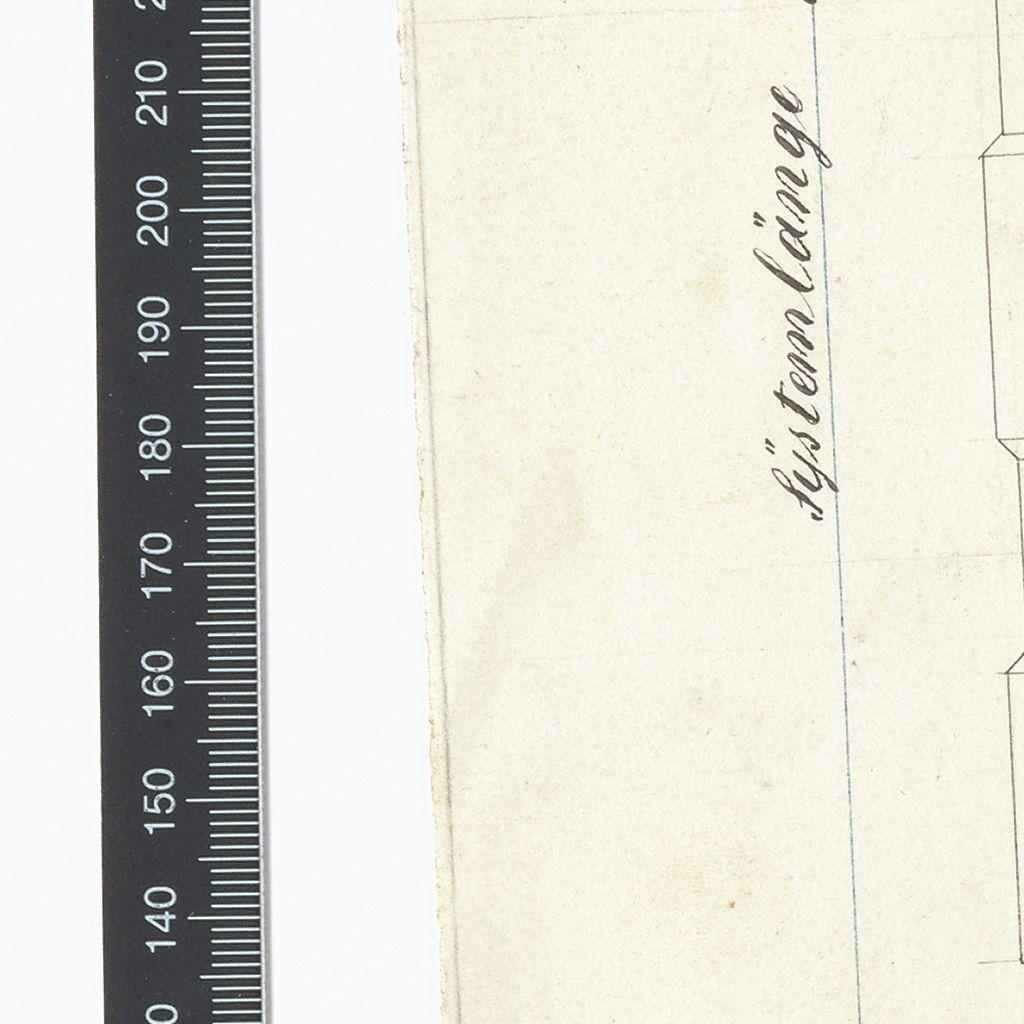 210
200
190
180
170
160
150
140
Sÿstemlänge